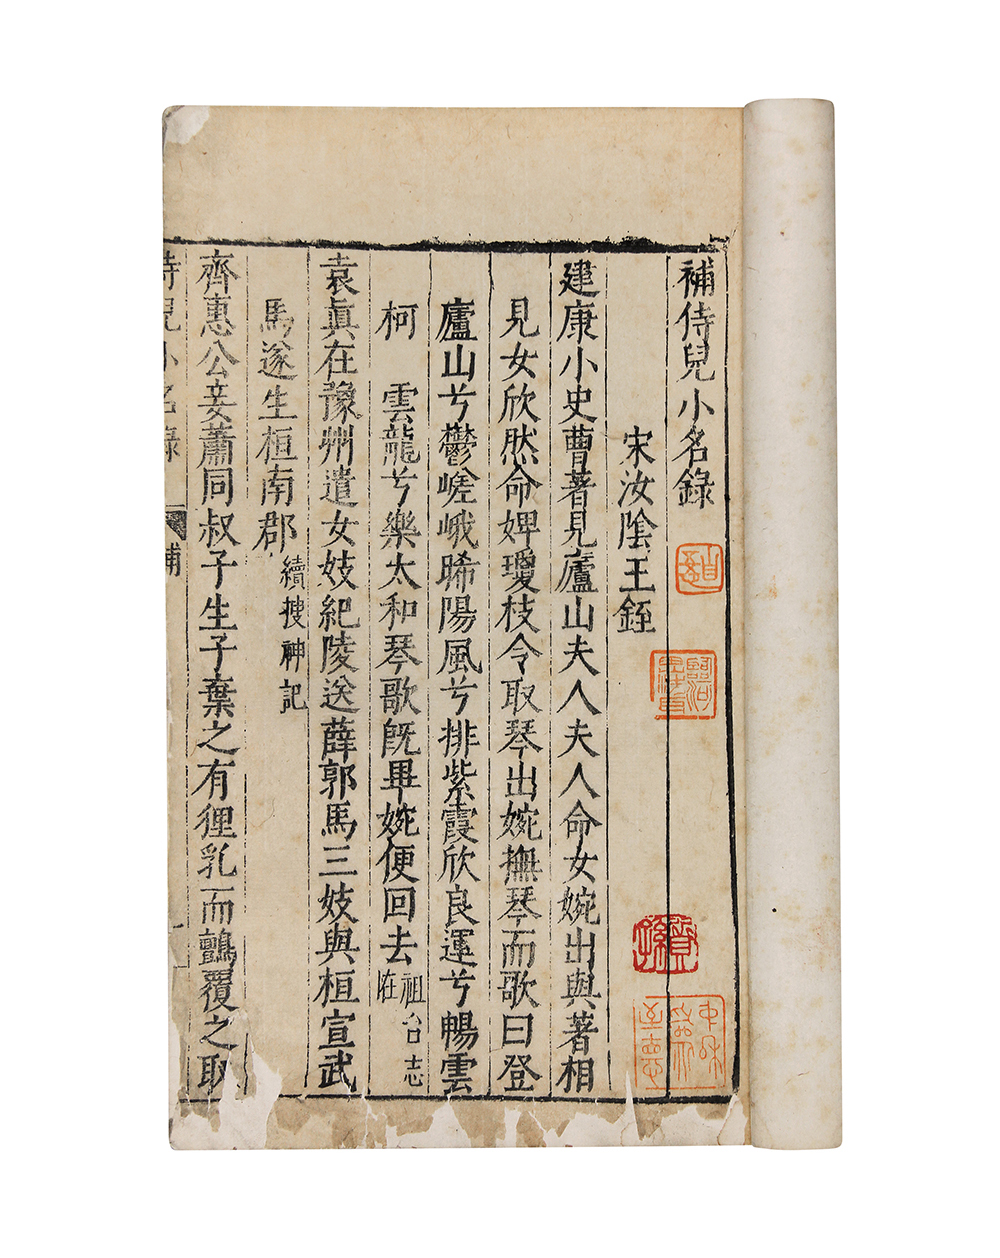 補侍兒小名錄
宋汝陰王銍
建康小史曹著見廬山夫人夫人命女婉出與著相
見女欣然命婢瓊枝令取琴出婉撫琴而歌曰登
廬山兮鬱嵯峨晞陽風兮排紫霞欣良運兮暢雲
柯　雲龍兮樂太和琴歌既畢婉便回去祖台志
袁眞在豫州遣女妓紀陵送薛郭馬三妓與桓宣武
馬遂生桓南郡續搜神記
齊惠公妾蕭同叔子生子棄之有狸乳而鸇覆之取
侍兒小名錄
補